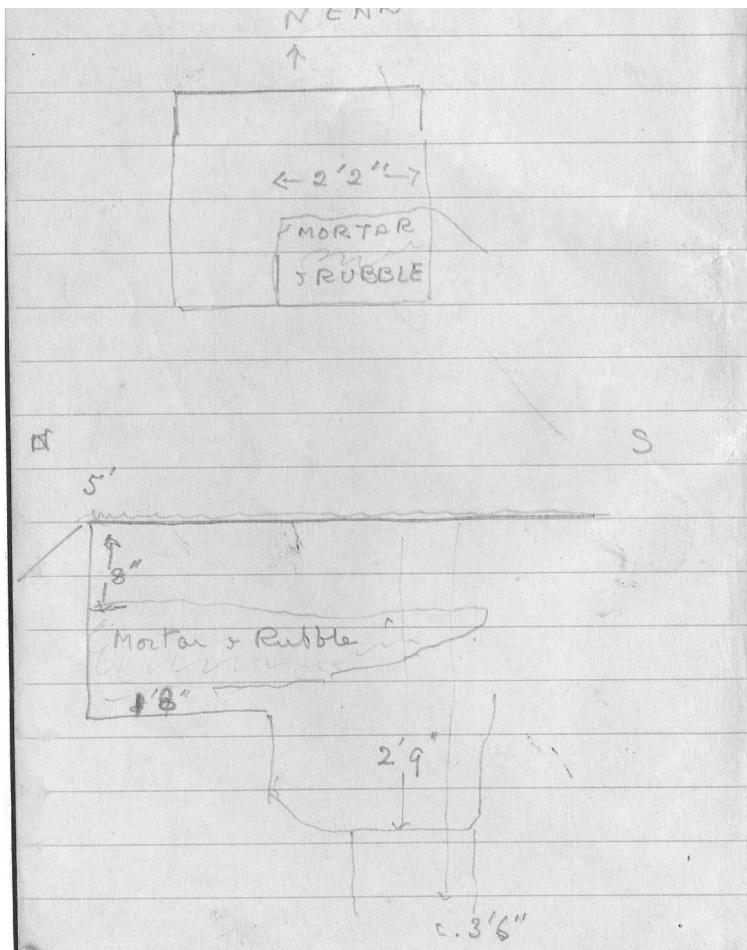 N END
2'2"
MORTAR
& RUBBLE
N S
5'
8"
Mortar & Rubble
1'8"
2'9"
c. 3'6"